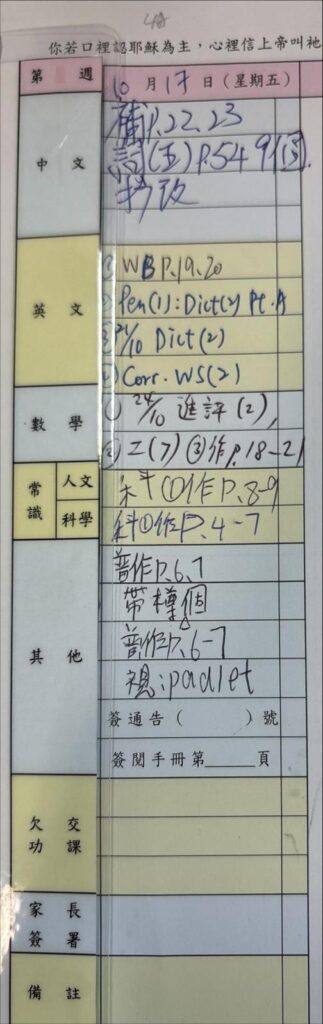 你若口裡認耶穌為主，心裡信上帝叫祂
第 週 10 月 17 日（星期五）
中文 補P.22、23
詞(五)P.54 9個
抄改
英文 ① WB P.19、20
② Pen(1): Dict(4) Pt.A
③ 21/10 Dict(2)
④ Corr. WS(2)
數學 ① 24/10 進評(2),
② 工(7) ③作P.18-21
常識 人文 ①作P.8-9
科學 科①作P.4-7
其他 普作P.6、7
帶樽個
普作P.6-7
視:padlet
簽通告（ ）號
簽閱手冊第＿＿＿頁
欠交功課
家長簽署
備註